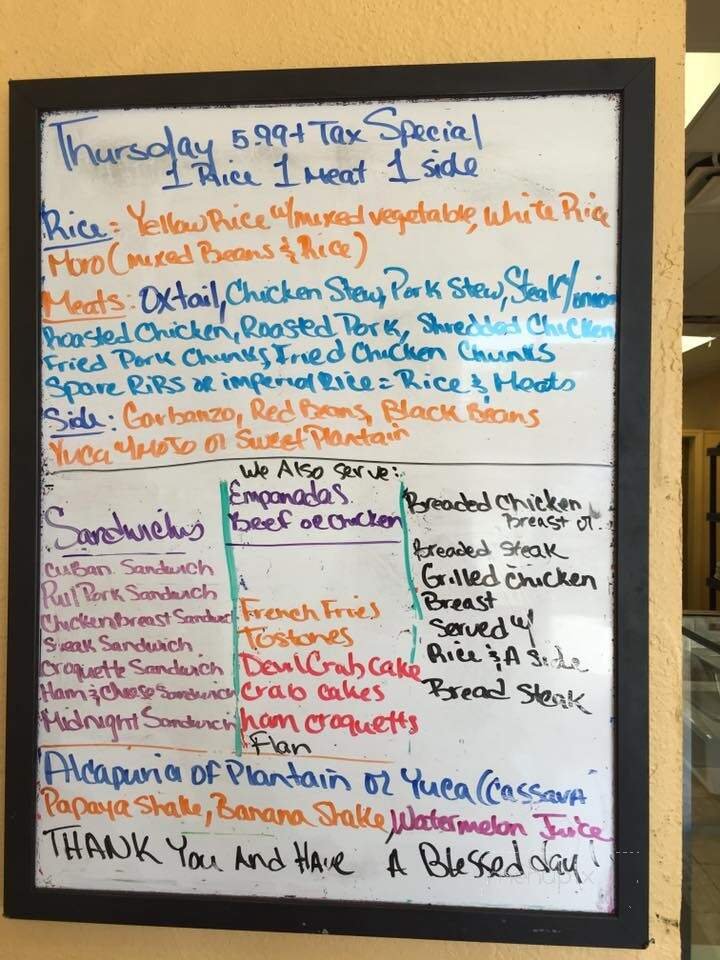 Thursday 5.99+ Tax Special
1 Rice 1 Meat 1 side
Rice: Yellow Rice w/mixed vegetable, White Rice
Moro (mixed Beans & Rice)
Meats: Oxtail, Chicken Stew, Pork Stew, Steak/onion
Roasted Chicken, Roasted Pork, Shredded Chicken
Fried Pork Chunks, Fried Chicken Chunks
Spare Ribs or imperial Rice = Rice & Meats
Side: Garbanzo, Red Beans, Black Beans
Yuca w/Mojo or Sweet Plantain
We Also Serve:
Sandwichs
Cuban Sandwich
Pull Pork Sandwich
Chicken Breast Sandwich
Steak Sandwich
Croquette Sandwich
Ham & Cheese Sandwich
Midnight Sandwich
Empanadas
Beef or Chicken
French Fries
Tostones
Devil Crab Cake
Crab Cakes
ham croquetts
Flan
Breaded Chicken
Breast or
Breaded Steak
Grilled Chicken
Breast
Served w/
Rice & A Side
Bread Steak
Alcapuria of Plantain or Yuca (Cassava
Papaya Shake, Banana Shake, Watermelon Juice
THANK You And Have A Blessed day!